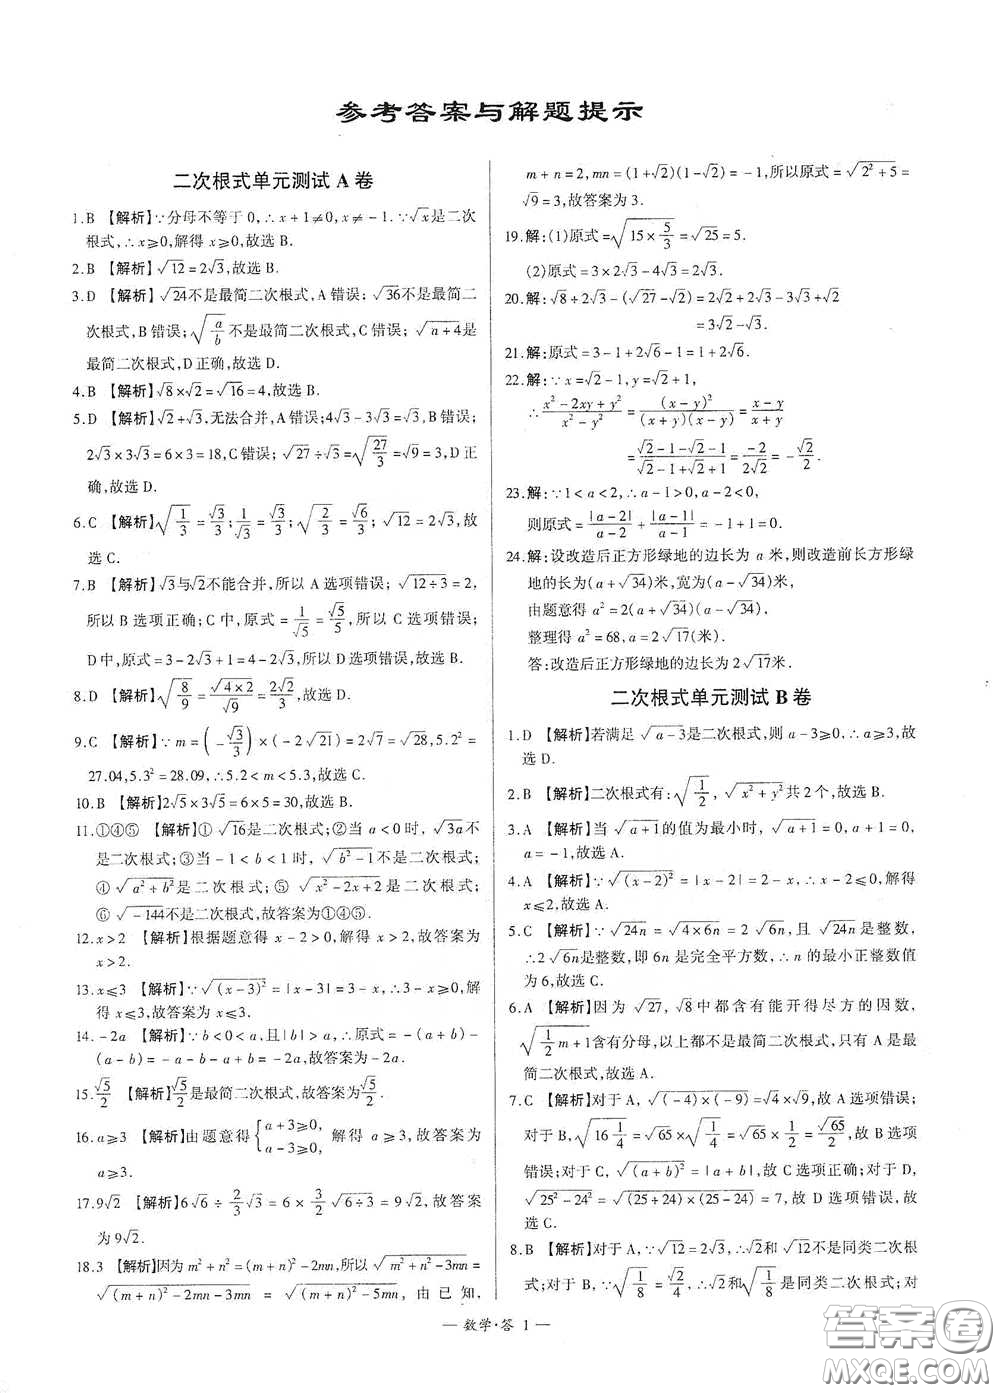 参考答案与解题提示
二次根式单元测试 A 卷
1.B 【解析】∵分母不等于 0,∴x+1≠0,x≠-1.∵√x是二次
根式,∴x≥0,解得 x≥0,故选 B.
2.B 【解析】√12=2√3,故选 B.
3.D 【解析】√24不是最简二次根式,A 错误;√36不是最简二
次根式,B 错误;√(a/b)不是最简二次根式,C 错误;√(a+4)是
最简二次根式,D 正确,故选 D.
4.B 【解析】√8×√2=√16=4,故选 B.
5.D 【解析】√2+√3,无法合并,A 错误;4√3-3√3=√3,B 错误;
2√3×3√3=6×3=18,C 错误;√27÷√3=√(27/3)=√9=3,D 正
确,故选 D.
6.C 【解析】√(1/3)=√3/3;1/√3=√3/3;√(2/3)=√6/3;√12=2√3,故
选 C.
7.B 【解析】√3与√2不能合并,所以 A 选项错误;√(12÷3)=2,
所以 B 选项正确;C 中,原式=1/√5=√5/5,所以 C 选项错误;
D 中,原式=3-2√3+1=4-2√3,所以 D 选项错误,故选 B.
8.D 【解析】√(8/9)=√(4×2)/√9=2√2/3,故选 D.
9.C 【解析】∵m=(-√3/3)×(-2√21)=2√7=√28,5.2²=
27.04,5.3²=28.09,∴5.2<m<5.3,故选 C.
10.B 【解析】2√5×3√5=6×5=30,故选 B.
11.①④⑤ 【解析】①√16是二次根式;②当 a<0时,√3a不
是二次根式;③当-1<b<1时,√(b²-1)不是二次根式;
④√(a²+b²)是二次根式;⑤√(x²-2x+2)是二次根式;
⑥√-144不是二次根式,故答案为①④⑤.
12.x>2 【解析】根据题意得 x-2>0,解得 x>2,故答案为
x>2.
13.x≤3 【解析】∵√(x-3)²=|x-3|=3-x,∴3-x≥0,解
得 x≤3,故答案为 x≤3.
14.-2a 【解析】∵b<0<a,且|b|>a,∴原式=-(a+b)-
(a-b)=-a-b-a+b=-2a,故答案为-2a.
15.√5/2 【解析】√5/2是最简二次根式,故答案为√5/2.
16.a≥3 【解析】由题意得{a+3≥0, a-3≥0, 解得 a≥3,故答案为
a≥3.
17.9√2 【解析】6√6÷2/3√3=6×3/2√(6÷3)=9√2,故答案
为 9√2.
18.3 【解析】因为 m²+n²=(m+n)²-2mn,所以√(m²+n²-3mn)
=√((m+n)²-2mn-3mn)=√((m+n)²-5mn),由已知,
m+n=2,mn=(1+√2)(1-√2)=-1,所以原式=√(2²+5)=
√9=3,故答案为 3.
19.解:(1)原式=√(15×5/3)=√25=5.
(2)原式=3×2√3-4√3=2√3.
20.解:√8+2√3-(√27-√2)=2√2+2√3-3√3+√2
=3√2-√3.
21.解:原式=3-1+2√6-1=1+2√6.
22.解:∵x=√2-1,y=√2+1,
∴(x²-2xy+y²)/(x²-y²)=(x-y)²/((x+y)(x-y))=(x-y)/(x+y)
=(√2-1-√2-1)/(√2-1+√2+1)=-2/(2√2)=-√2/2.
23.解:∵1<a<2,∴a-1>0,a-2<0,
则原式=|a-2|/(a-2)+|a-1|/(a-1)=-1+1=0.
24.解:设改造后正方形绿地的边长为 a 米,则改造前长方形绿
地的长为(a+√34)米,宽为(a-√34)米,
由题意得 a²=2(a+√34)(a-√34),
整理得 a²=68,a=2√17(米).
答:改造后正方形绿地的边长为 2√17米.
二次根式单元测试 B 卷
1.D 【解析】若满足√(a-3)是二次根式,则 a-3≥0,∴a≥3,故
选 D.
2.B 【解析】二次根式有:√(1/2),√(x²+y²)共 2 个,故选 B.
3.A 【解析】当√(a+1)的值为最小时,√(a+1)=0,a+1=0,
a=-1,故选 A.
4.A 【解析】∵√(x-2)²=|x-2|=2-x,∴2-x≥0,解得
x≤2,故选 A.
5.C 【解析】∵√24n=√(4×6n)=2√6n,且√24n是整数,
∴2√6n是整数,即 6n 是完全平方数,∴n 的最小正整数值
为 6,故选 C.
6.A 【解析】因为√27,√8中都含有能开得尽方的因数,
√(1/2m+1)含有分母,以上都不是最简二次根式,只有 A 是最
简二次根式,故选 A.
7.C 【解析】对于 A,√((-4)×(-9))=√4×√9,故 A 选项错误;
对于 B,√(16 1/4)=√65×√(1/4)=√65×1/2=√65/2,故 B 选项
错误;对于 C,√(a+b)²=|a+b|,故 C 选项正确;对于 D,
√(25²-24²)=√((25+24)×(25-24))=7,故 D 选项错误,故
选 C.
8.B 【解析】对于 A,∵√12=2√3,∴√2和√12不是同类二次根
式;对于 B,∵√(1/8)=√2/4,∴√2和√(1/8)是同类二次根式;对
— 数学·答 1 —
答案卷
MXQE.COM